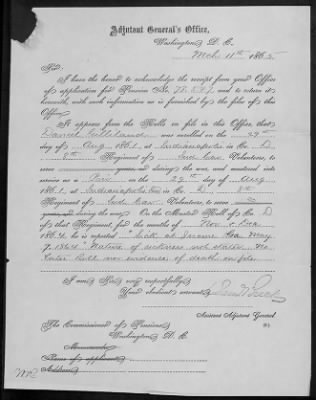 Adjutant General's Office,
Washington, D. C.,
Mch 11th 1865
Sir:
I have the honor to acknowledge the receipt from your Office
of application for Pension No. 78.597, and to return it
herewith, with such information as is furnished by the files of this
Office.
It appears from the Rolls on file in this Office, that
Daniel Gilleland was enrolled on the 29th
day of Aug 1861, at Indianapolis in Co. D
8th Regiment of Ind Cav Volunteers, to
serve years, or during the war, and mustered into
service as a Priv on the 29th day of Aug
1861, at Indianapolis Ind in Co. D 8th
Regiment of Ind Cav Volunteers, to serve 3
years, or during the war. On the Muster Roll of Co. D
of that Regiment, for the months of Nov & Dec
1864, he is reported "Sick at Ga May
9, 1864." Nature of sickness not stated. No
later Roll nor evidence of death on file.
I am, Sir, very respectfully,
Your obedient servant,
Assistant Adjutant General
The Commissioner of Pensions,
Washington, D. C.
Memoranda:
Name of applicant,
Address,